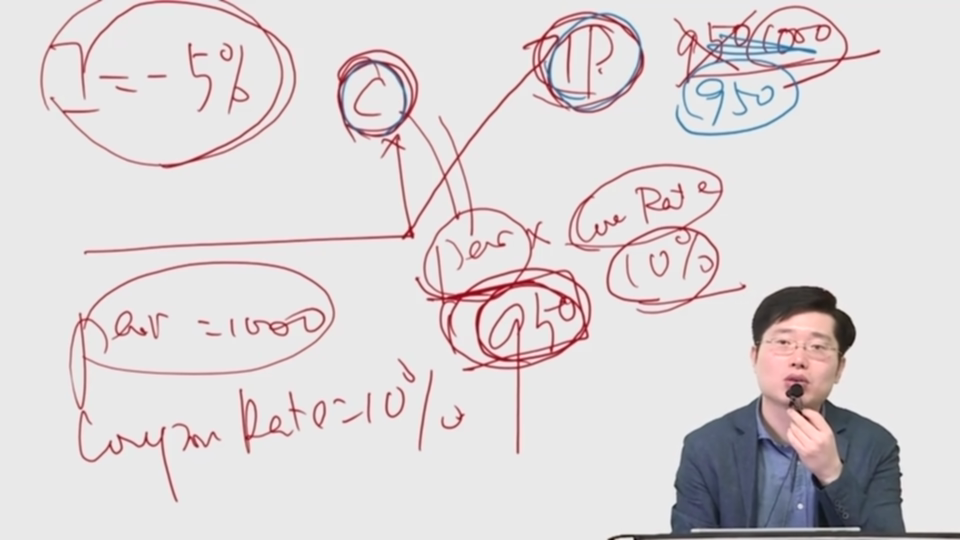 I = - 5%
C
IP?
950 1000
950
par x
Cou Rate
10%
950
par = 1000
Coupon Rate = 10%